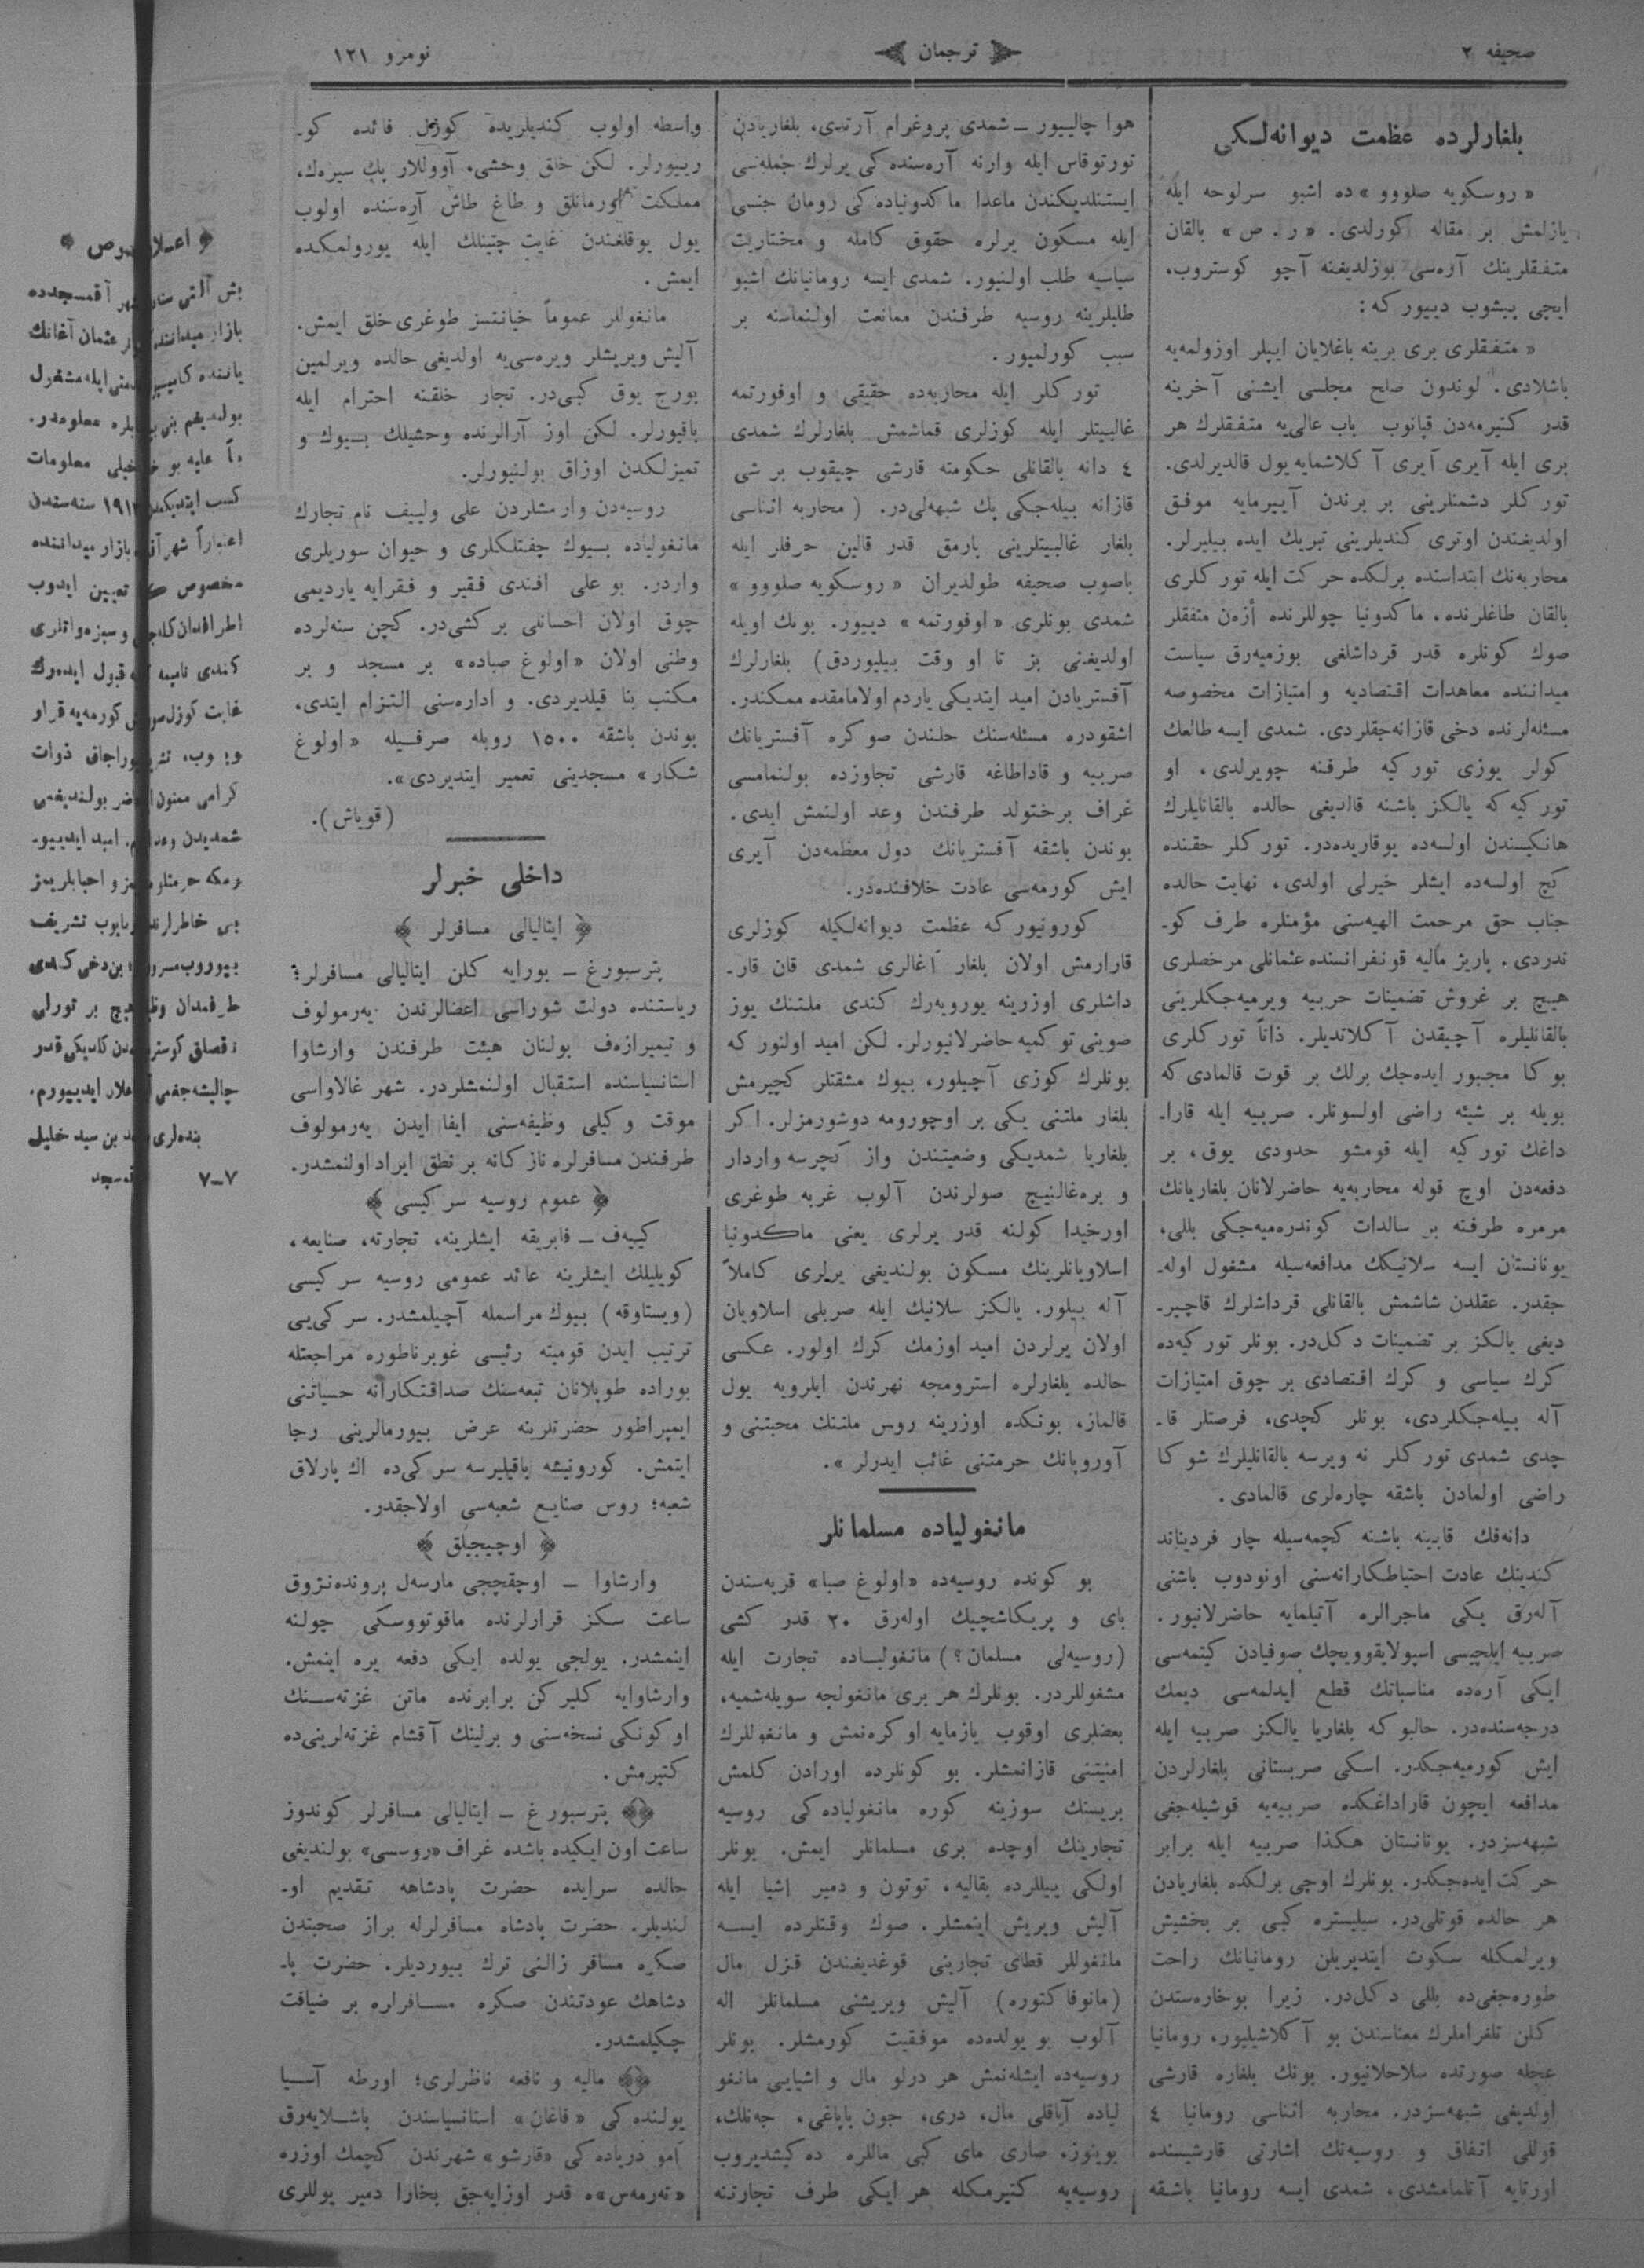 صحیفه ٢
ترجمان
نومرو ١٢١
بلغارلرده عظمت دیوانه‌لکی
« روسکویه صلووو » ده اشبو سرلوحه ایله
یازلمش بر مقاله کورلدی. « ر. ص » بالقان
متفقلرینك آره‌سی بوزلدیغنه آجو کوستروب،
ایچی پیشوب دییور که :
« متفقلری بری برینه باغلایان ایپلر اوزولمه‌یه
باشلادی. لوندون صلح مجلسی ایشنی آخرینه
قدر کتیرمه‌دن قپانوب باب عالی‌یه متفقلرك هر
بری ایله آیری آیری آ کلاشمایه یول قالدیرلدی.
تورکلر دشمنلرینی بر برندن آییرمایه موفق
اولدیغندن اوتری کندیلرینی تبریك ایده بیلیرلر.
محاربه‌نك ابتداسنده برلکده حرکت ایله تورکلری
بالقان طاغلرنده، ماکدونیا چوللرنده أزه‌ن متفقلر
صوك کونلره قدر قرداشلغی بوزمیه‌رق سیاست
میداننده معاهدات اقتصادیه و امتیازات مخصوصه
مسئله‌لرنده دخی قازانه‌جقلردی. شمدی ایسه طالعك
کولر یوزی تورکیه طرفنه چویرلدی، او
تورکیه که یالکز باشنه قالدیغی حالده بالقانلیلرك
هانکیسندن اولسه‌ده یوقاریده‌در. تورکلر حقنده
کچ اولسه‌ده ایشلر خیرلی اولدی، نهایت حالده
جناب حق مرحمت الهیه‌سنی مؤمنلره طرف کو-
ندردی. پاریژ مالیه قونفرانسنده عثمانلی مرخصلری
هیچ بر غروش تضمینات حربیه ویرمیه‌جکلرینی
بالقانلیلره آچیقدن آ کلاتدیلر. ذاتاً تورکلری
بوکا مجبور ایده‌جك برلك بر قوت قالمادی که
بویله بر شیئه راضی اولسونلر. صربیه ایله قارا-
داغك تورکیه ایله قومشو حدودی یوق، بر
دفعه‌دن اوچ قوله محاربه‌یه حاضرلانان بلغاریانك
مرمره طرفنه بر سالدات کوندره‌میه‌جکی بللی،
یونانستان ایسه سلانیکك مدافعه‌سیله مشغول اوله-
جقدر. عقلدن شاشمش بالقانلی قرداشلرك قاچیر-
دیغی یالکز بر تضمینات دکل‌در. بونلر تورکیه‌ده
كرك سیاسی و كرك اقتصادی بر چوق امتیازات
آله بیله‌جکلردی، بونلر کچدی، فرصتلر قا-
چدی شمدی تورکلر نه ویرسه بالقانلیلرك شوکا
راضی اولمادن باشقه چاره‌لری قالمادی.
دانه‌فك قابینه باشنه کچمه‌سیله چار فردیناند
کندینك عادت احتیاطکارانه‌سنی اونودوب باشنی
آله‌رق یکی ماجرالره آتیلمایه حاضرلانیور.
صربیه ایلچیسی اسپولایقوویچك صوفیادن کیتمه‌سی
ایکی آره‌ده مناسباتك قطع ایدلمه‌سی دیمك
درجه‌سنده‌در. حالبوکه بلغاریا یالکز صربیه ایله
ایش کورمیه‌جکدر. اسکی صربستانی بلغارلردن
مدافعه ایچون قاراداغکده صربیه‌یه قوشیله‌جغی
شبهه‌سزدر. یونانستان هکذا صربیه ایله برابر
حرکت ایده‌جکدر. بونلرك اوچی برلکده بلغاریادن
هر حالده قوتلی‌در. سیلیستره کبی بر بخشیش
ویرلمکله سکوت ایتدیریلن رومانیانك راحت
طوره‌جغی‌ده بللی دکل‌در. زیرا بوخارستدن
کلن تلغراملرك معناسندن بو آ کلاشیلیور، رومانیا
عجله صورتده سلاحلانیور. بونك بلغاره قارشی
اولدیغی شبهه‌سزدر. محاربه اثناسی رومانیا ٤
قوللی اتفاق و روسیه‌نك اشارتی قارشیسنده
اورتایه آتلمامشدی، شمدی ایسه رومانیا باشقه
هوا چالییور ـ شمدی پروغرام آرتدی، بلغاریادن
تورتوقاس ایله وارنه آره‌سنده کی یرلرك جمله‌سی
ایستنلدیکندن ماعدا ماکدونیاده کی رومان جنسی
ایله مسکون یرلره حقوق کامله و مختاریت
سیاسیه طلب اولنیور. شمدی ایسه رومانیانك اشبو
طلبلرینه روسیه طرفندن ممانعت اولنماسنه بر
سبب کورلمیور.
تورکلر ایله محاربه‌ده حقیقی و اوفورتمه
غالبیتلر ایله کوزلری قماشمش بلغارلرك شمدی
٤ دانه بالقانلی حکومته قارشی چیقوب بر شی
قازانه بیله‌جکی پك شبهه‌لی‌در. ( محاربه اثناسی
بلغار غالبیتلرینی یارمق قدر قالین حرفلر ایله
باصوب صحیفه طولدیران « روسکویه صلووو »
شمدی بونلری « اوفورتمه » دییور. بونك اویله
اولدیغنی بز تا او وقت بیلیوردق) بلغارلرك
آفستریادن امید ایتدیکی یاردم اولامامقده ممکندر.
اشقودره مسئله‌سنك حلندن صوکره آفستریانك
صربیه و قاراطاغه قارشی تجاوزده بولنمامسی
غراف برختولد طرفندن وعد اولنمش ایدی.
بوندن باشقه آفستریانك دول معظمه‌دن آیری
ایش کورمه‌سی عادت خلافنده‌در.
کورونیور که عظمت دیوانه‌لکیله کوزلری
قارارمش اولان بلغار آغالری شمدی قان قار-
داشلری اوزرینه یورویه‌رك کندی ملتنك یوز
صوینی توکمیه حاضرلانیورلر. لکن امید اولنور که
بونلرك کوزی آچیلور، بیوك مشقتلر کچیرمش
بلغار ملتنی یکی بر اوچورومه دوشورمزلر. اکر
بلغاریا شمدیکی وضعیتندن واز کچرسه واردار
و بره‌غالنیچ صولرندن آلوب غربه طوغری
اورخیدا کولنه قدر یرلری یعنی ماکدونیا
اسلاویانلرینك مسکون بولندیغی یرلری کاملاً
آله بیلور. یالکز سلانیك ایله صربلی اسلاویان
اولان یرلردن امید اوزمك كرك اولور. عکسی
حالده بلغارلره استرومجه نهرندن ایلرویه یول
قالماز، بونکده اوزرینه روس ملتنك محبتنی و
آوروپانك حرمتنی غائب ایدرلر ».
مانغولیاده مسلمانلر
بو کونده روسیه‌ده « اولوغ صبا » قریه‌سندن
بای و پریکاشچیك اوله‌رق ٢٠ قدر کشی
(روسیه‌لی مسلمان؟) مانغولیاده تجارت ایله
مشغوللردر. بونلرك هر بری مانغولجه سویله‌شمیه،
بعضلری اوقوب یازمایه اوکره‌نمش و مانغوللرك
امنیتنی قازانمشلر. بو کونلرده اورادن کلمش
بریسنك سوزینه کوره مانغولیاده کی روسیه
تجارینك اوچده بری مسلمانلر ایمش. بونلر
اولکی ییللرده بقالیه، توتون و دمیر اشیا ایله
آلیش ویریش ایتمشلر. صوك وقتلرده ایسه
مانغوللر قطای تجارینی قوغدیغندن قزل مال
(مانوفاکتوره) آلیش ویریشنی مسلمانلر اله
آلوب بو یولده‌ده موفقیت کورمشلر. بونلر
روسیه‌ده ایشله‌نمش هر درلو مال و اشیایی مانغو
لیاده آیاقلی مال، دری، جون یاپاغی، جه‌نلك،
بوینوز، صاری مای کبی ماللره ده کیشدیروب
روسیه‌یه کتیرمکله هر ایکی طرف تجارتنه
واسطه اولوب کندیلریده کوزل فائده کو-
رییورلر. لکن خلق وحشی، آووللار پك سیره‌ك،
مملکت اورمانلق و طاغ طاش آره‌سنده اولوب
یول یوقلغندن غایت چتینلك ایله یورولمکده
ایمش.
مانغوللر عموماً خیانتسز طوغری خلق ایمش.
آلیش ویریشلر ویره‌سی‌یه اولدیغی حالده ویرلمین
بورج یوق کبی‌در. تجار خلقنه احترام ایله
باقیورلر. لکن اوز آرالرنده وحشیلك بیوك و
تمیزلکدن اوزاق بولنیورلر.
روسیه‌دن وارمشلردن علی ولییف نام تجارك
مانغولیاده بیوك چفتلکلری و حیوان سوریلری
واردر. بو علی افندی فقیر و فقرایه یاردیمی
چوق اولان احسانلی بر کشی‌در. کچن سنه‌لرده
وطنی اولان « اولوغ صباده » بر مسجد و بر
مکتب بنا قیلدیردی. و اداره‌سنی التزام ایتدی،
بوندن باشقه ١٥٠٠ روبله صرفیله « اولوغ
شکار » مسجدینی تعمیر ایتدیردی ».
( قویاش ).
داخلی خبرلر
ایتالیالی مسافرلر
پترسبورغ ـ بورایه کلن ایتالیالی مسافرلر؛
ریاستنده دولت شوراسی اعضالرندن یه‌رمولوف
و تیمیرازه‌ف بولنان هیئت طرفندن وارشاوا
استانسیاسنده استقبال اولنمشلردر. شهر غالاواسی
موقت وکیلی وظیفه‌سنی ایفا ایدن یه‌رمولوف
طرفندن مسافرلره نازکانه بر نطق ایراد اولنمشدر.
عموم روسیه سرکیسی
کییه‌ف ـ فابریقه ایشلرینه، تجارته، صنایعه،
کویلیلك ایشلرینه عائد عمومی روسیه سرکیسی
(ویستاوقه) بیوك مراسمله آچیلمشدر. سرکی‌یی
ترتیب ایدن قومیته رئیسی غوبرناطوره مراجعتله
بوراده طوپلانان تبعه‌سنك صداقتکارانه حسیاتنی
ایمپراطور حضرتلرینه عرض بیورمالرینی رجا
ایتمش. کورونیشه باقیلیرسه سرکی‌ده اك پارلاق
شعبه؛ روس صنایع شعبه‌سی اولاجقدر.
اوچیجیلق
وارشاوا ـ اوچقچی مارسه‌ل بروندە‌نژوق
ساعت سکز قرارلرنده ماقوتووسکی چولنه
اینمشدر. یولجی یولده ایکی دفعه یره اینمش.
وارشاوایه کلیرکن برابرنده ماتن غزته‌سنك
اوکونکی نسخه‌سنی و برلینك آقشام غزته‌لرینی‌ده
کتیرمش.
پترسبورغ ـ ایتالیالی مسافرلر کوندوز
ساعت اون ایکیده باشده غراف «روسسی» بولندیغی
حالده سرایده حضرت پادشاهه تقدیم او-
لندیلر. حضرت پادشاه مسافرلرله براز صحبتدن
صکره مسافر زالنی ترك بیوردیلر. حضرت پا-
دشاهك عودتندن صکره مسافرلره بر ضیافت
چکیلمشدر.
مالیه و نافعه ناظرلری؛ اورطه آسیا
یولنده کی « قاغان » استانسیاسندن باشلایه‌رق
آمو دریاده کی «قارشو» شهرندن کچمك اوزره
«ته‌رمه‌س»ه قدر اوزایه‌جق بخارا دمیر یوللری
آقمسجدده
عثمان آغانك
ایله مشغول
معلومدر.
معلومات
سنه‌سندن
بازار میداننده
مخصوص تعیین ایدوب
قبول ایده‌رك
کورمه‌یه قرار
ذوات
بولندیغمی
شمدیدن امید ایدییو-
واحبابلریمز
تشریف
دخی کندی
بر تورلی
قدر
ایدییورم.
بن سید خلیل
٧ـ٧